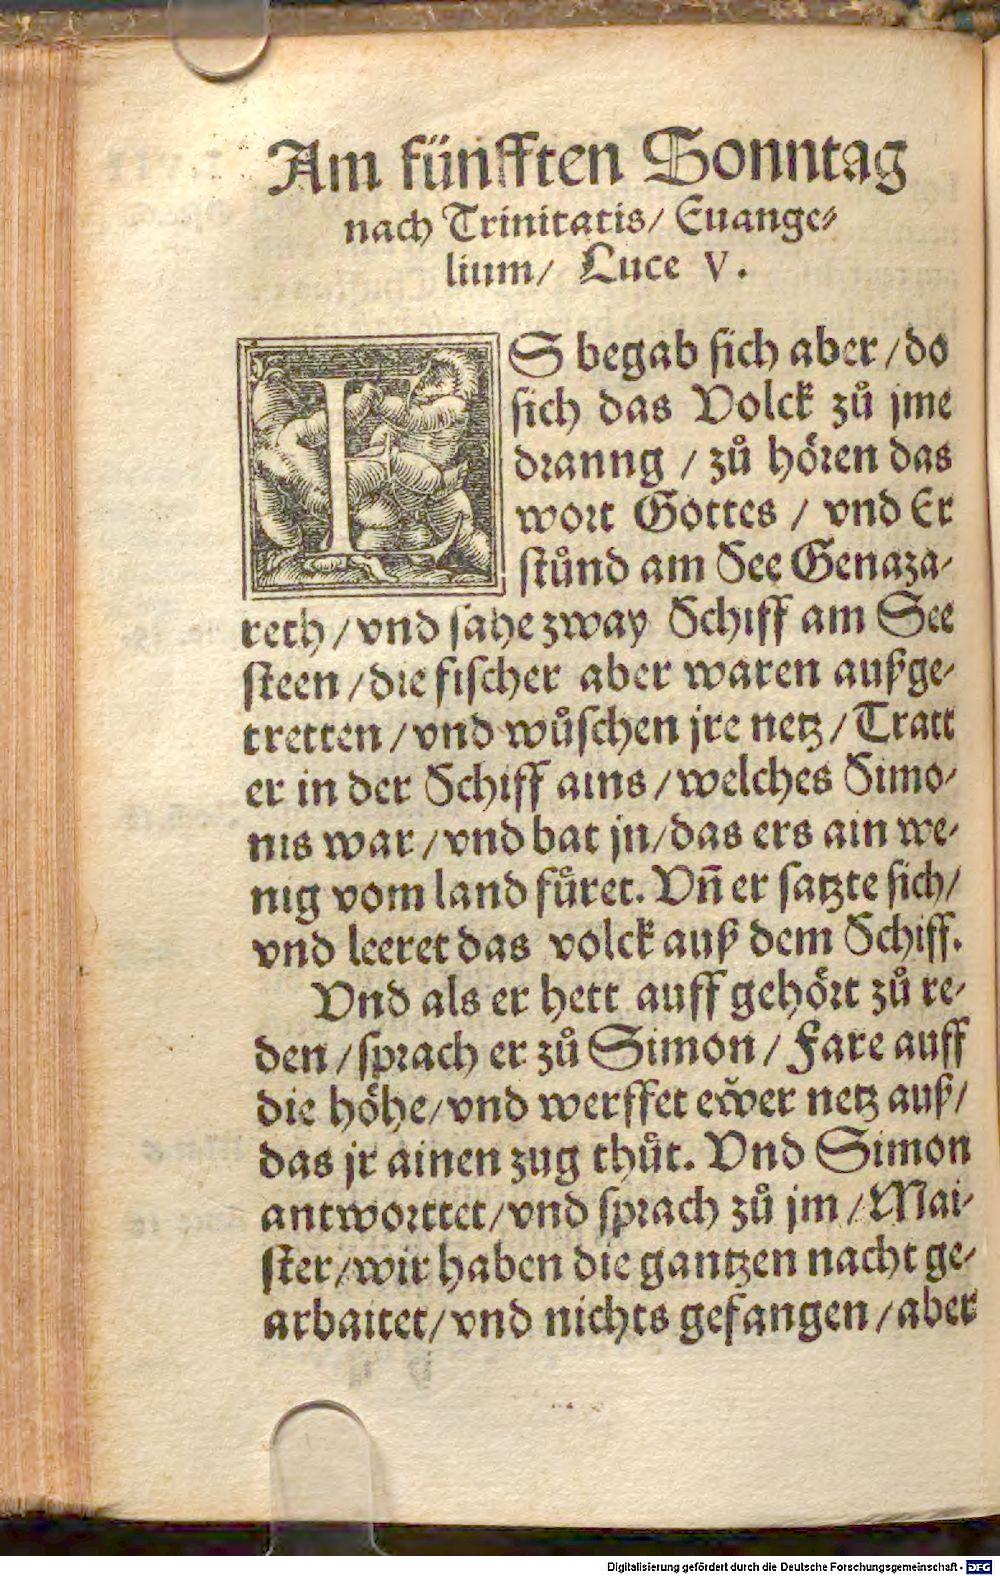 Am fünfften Sonntag
nach Trinitatis/ Euange⸗
lium/ Luce V.
ES begab sich aber/do
sich das Volck zů jme
dranng / zů hören das
wort Gottes / vnd Er
stůnd am See Genaza⸗
reth/vnd sahe zway Schiff am See
steen/die fischer aber waren außge⸗
tretten/vnd wůschen jre netz/Tratt
er in der Schiff ains/welches Simo⸗
nis war/vnd bat jn/das ers ain we⸗
nig vom land fůret. Vñ er satzte sich/
vnd leeret das volck auß dem Schiff.
Vnd als er hett auff gehört zů re⸗
den/sprach er zů Simon/ Fare auff
die höhe/vnd werffet ew̌er netz auß/
das jr ainen zug thůt. Vnd Simon
antworttet/vnd sprach zů jm/Mai⸗
ster/wir haben die gantzen nacht ge⸗
arbaitet/vnd nichts gefangen/aber
Digitalisierung gefördert durch die Deutsche Forschungsgemeinschaft - DFG